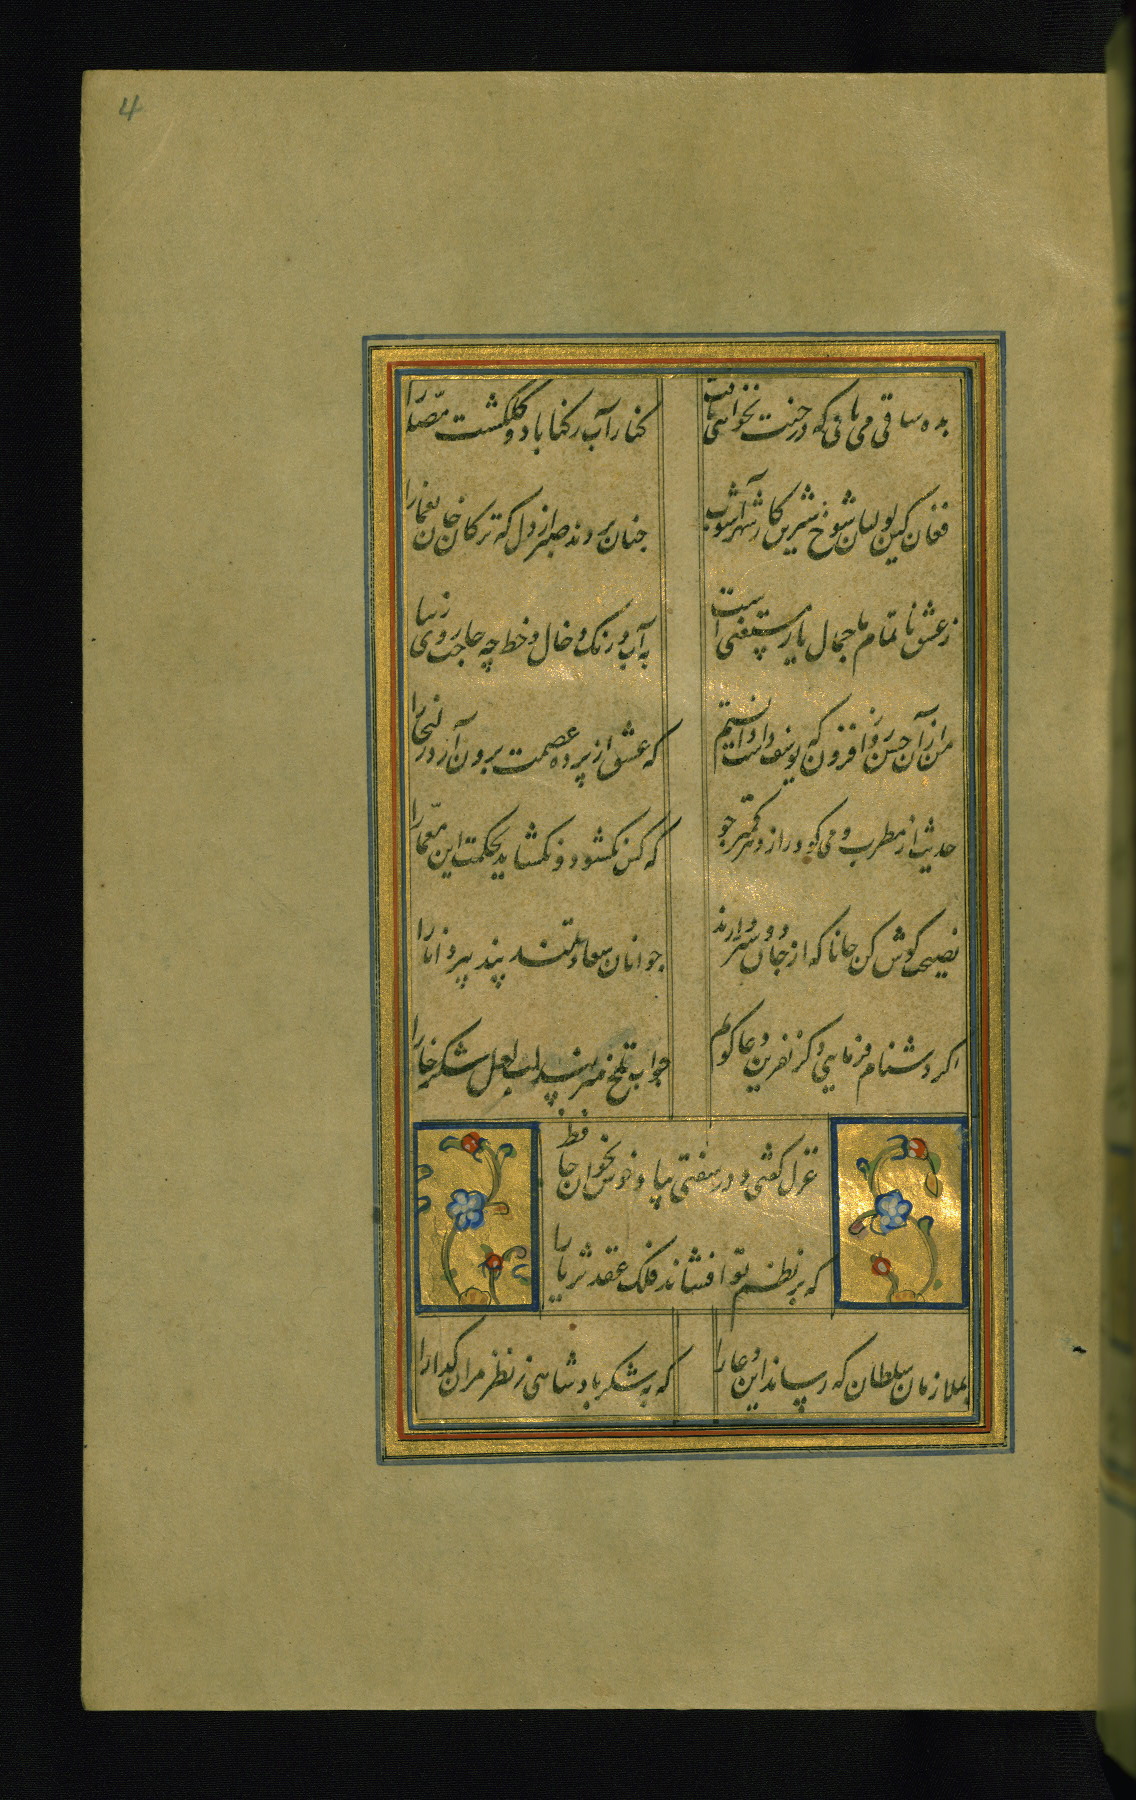 4
بده ساقی می باقی که در جنت نخواهی یافت
کنار آب رکناباد و گلگشت مصلّا را
فغان کین لولیان شوخ شیرین کار شهرآشوب
چنان بردند صبر از دل که ترکان خوان یغما را
ز عشق ناتمام ما جمال یار مستغنی است
به آب و رنگ و خال و خط چه حاجت روی زیبا را
من از آن حسن روز افزون که یوسف داشت دانستم
که عشق از پرده عصمت برون آرد زلیخا را
حدیث از مطرب و می گو و راز دهر کمتر جو
که کس نگشود و نگشاید بحکمت این معمّا را
نصیحت گوش کن جانا که از جان دوستر دارند
جوانان سعادتمند پند پیر دانا را
اگر دشنام فرمایی وگر نفرین دعا گویم
جواب تلخ میزیبد لب لعل شکرخا را
غزل گفتی و در سفتی بیا و خوش بخوان حافظ
که بر نظم تو افشاند فلک عقد ثریا را
بملازمان سلطان که رساند این دعا را
که به شکر پادشاهی ز نظر مران گدا را